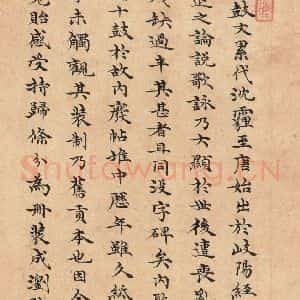 鼓文累代沈霾至唐始出於岐陽經
之論說歌詠乃大顯於世後遭喪亂
殘缺過半其甚者且同沒字碑矣內
十鼓於故內廢帖堆中歷年雖久紙
未觸觀其裝制乃舊貢本也因
貽感受持歸條分為冊裝成瀏
Shufawang.CN